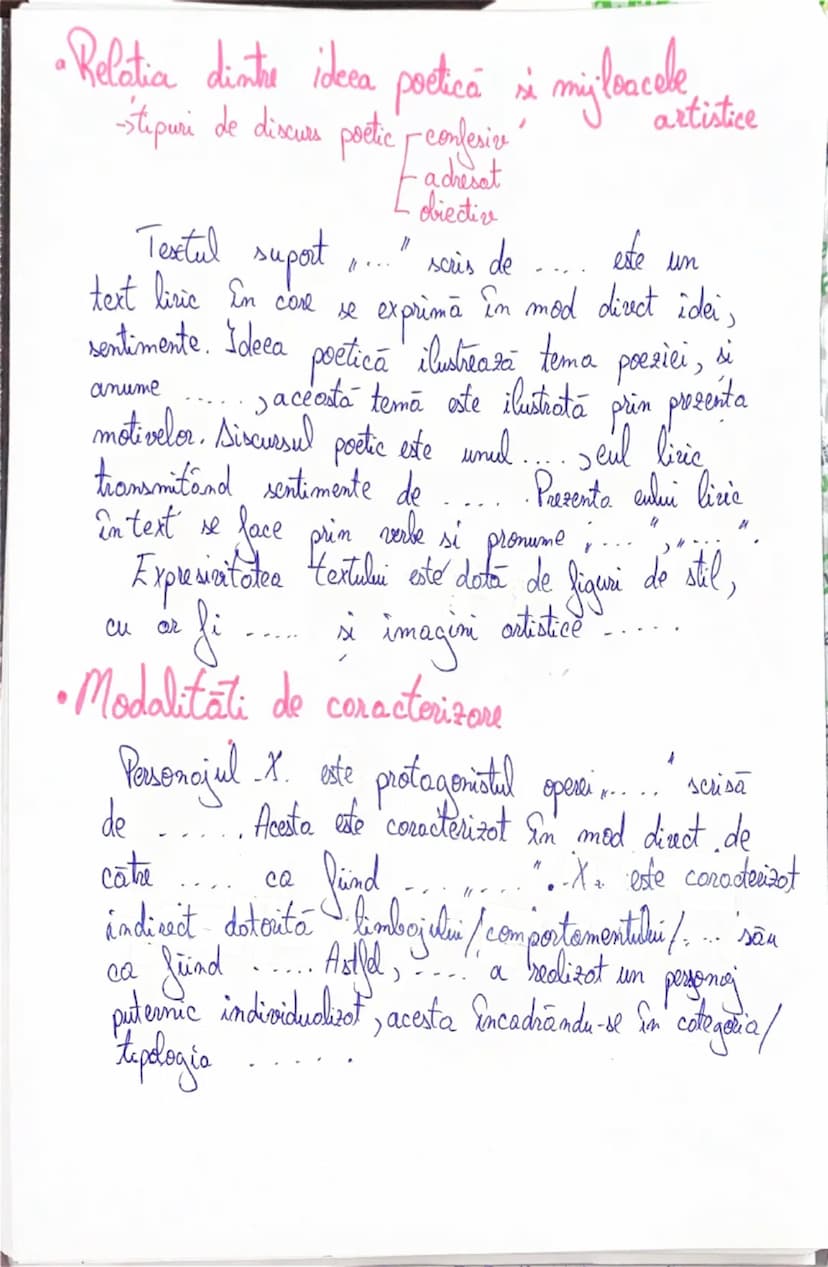 • Relația dintre ideea poetică și mijloacele
artistice
→tipuri de discurs poetic confesiv
adresat
obiectiv
Textul suport „...” scris de .... este un
text liric în care se exprimă în mod direct idei,
sentimente. Ideea poetică ilustrează tema poeziei, și
anume ....., această temă este ilustrată prin prezența
motivelor. Discursul poetic este unul ...., eul liric
transmitând sentimente de ..... Prezenta eului liric
în text se face prin verbe si pronume „...”, „...”.
Expresivitatea textului este dotă de figuri de stil,
cu ar fi ..... și imagini artistice ......
• Modalităti de caracterizare
Personajul X. este protagonistul operei „.....” scrisă
de ...... Acesta este caracterizat în mod direct de
către .... ca fiind .... „....”. X. este caracterizat
indirect datorită limbajului/comportamentului/.... său
ca fiind ..... Astfel, ..... a realizat un personaj
puternic individualizat, acesta încadrându-se în categoria/
tipologia ......